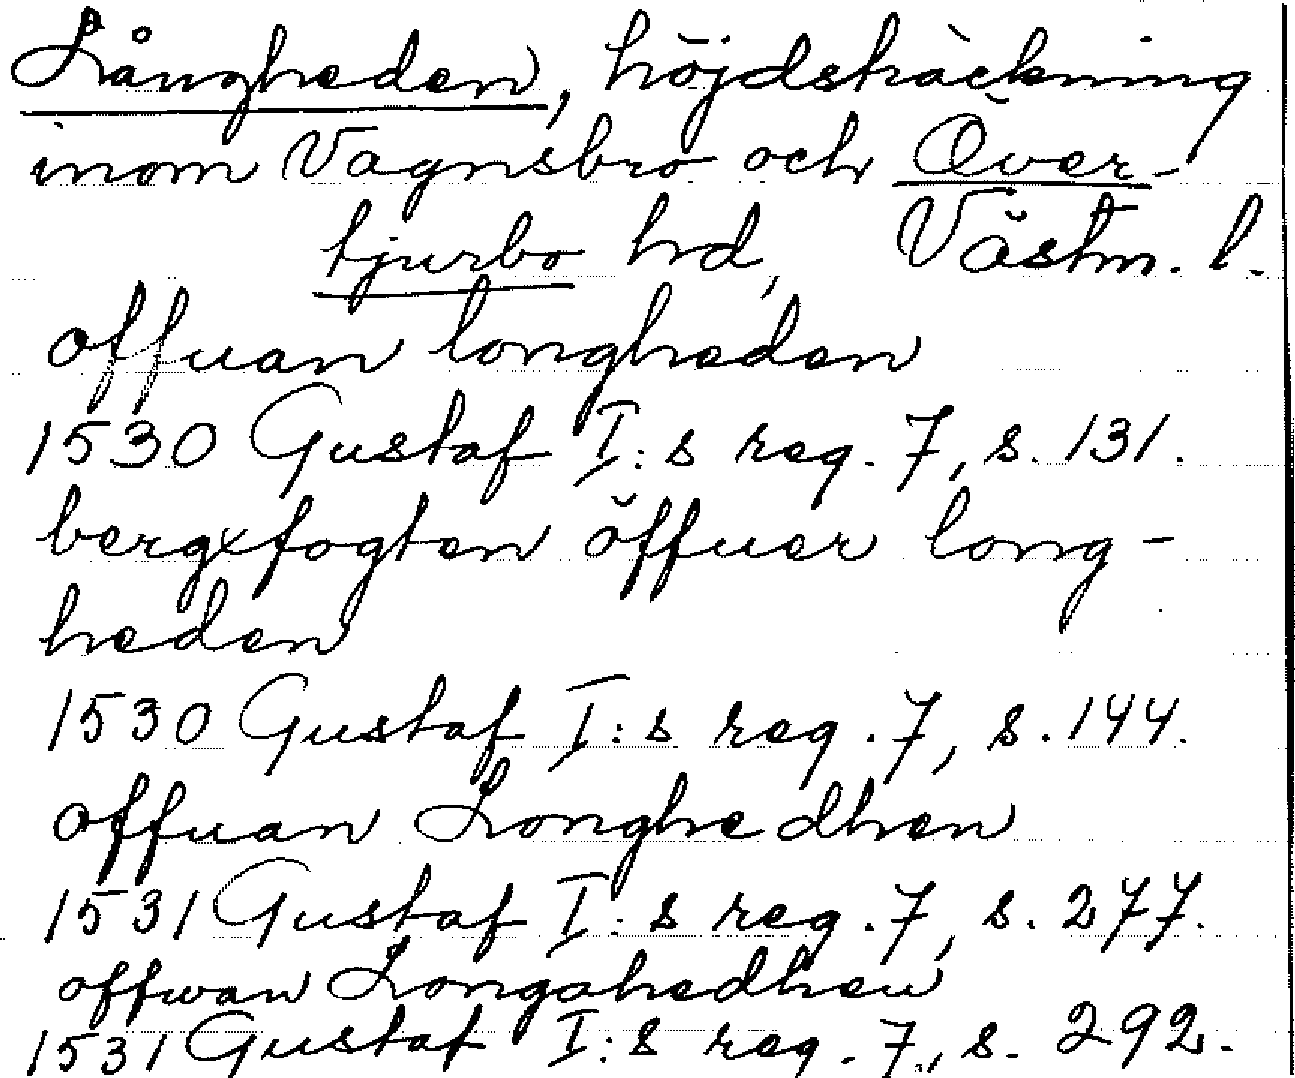 Långheden, höjdsträckning
inom Vagnsbro och Över-
tjurbo hd, Västm. l.
offuan longheden
1530 Gustaf I:s reg. 7, s. 131.
bergxfogten öffuer long-
heden
1530 Gustaf I:s reg. 7, s. 144.
offuan Longhedhen
1531 Gustaf I:s reg. 7, s. 277.
offwan Longahedhen
1531 Gustaf I:s reg. 7, s. 292.